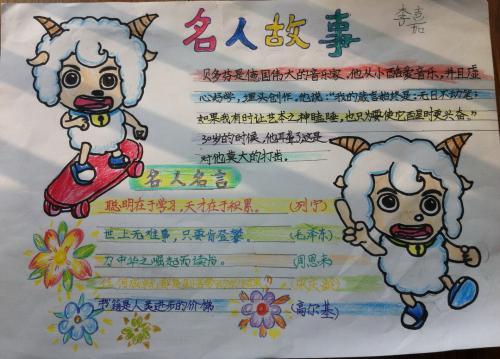 名人故事
李嘉茹
贝多芬是德国伟大的音乐家，他从小酷爱音乐，并且虚
心好学，埋头创作。他说："我的箴言始终是：无日不动笔；
如果我有时让艺术之神瞌睡，也只为要使它醒时更兴奋。"
30岁的时候，他耳聋了这是
对他莫大的打击。
名人名言
聪明在于学习，天才在于积累。 (列宁)
世上无难事，只要肯登攀。 (毛泽东)
为中华之崛起而读书。 (周恩来)
书籍是人类进步的阶梯 (高尔基)